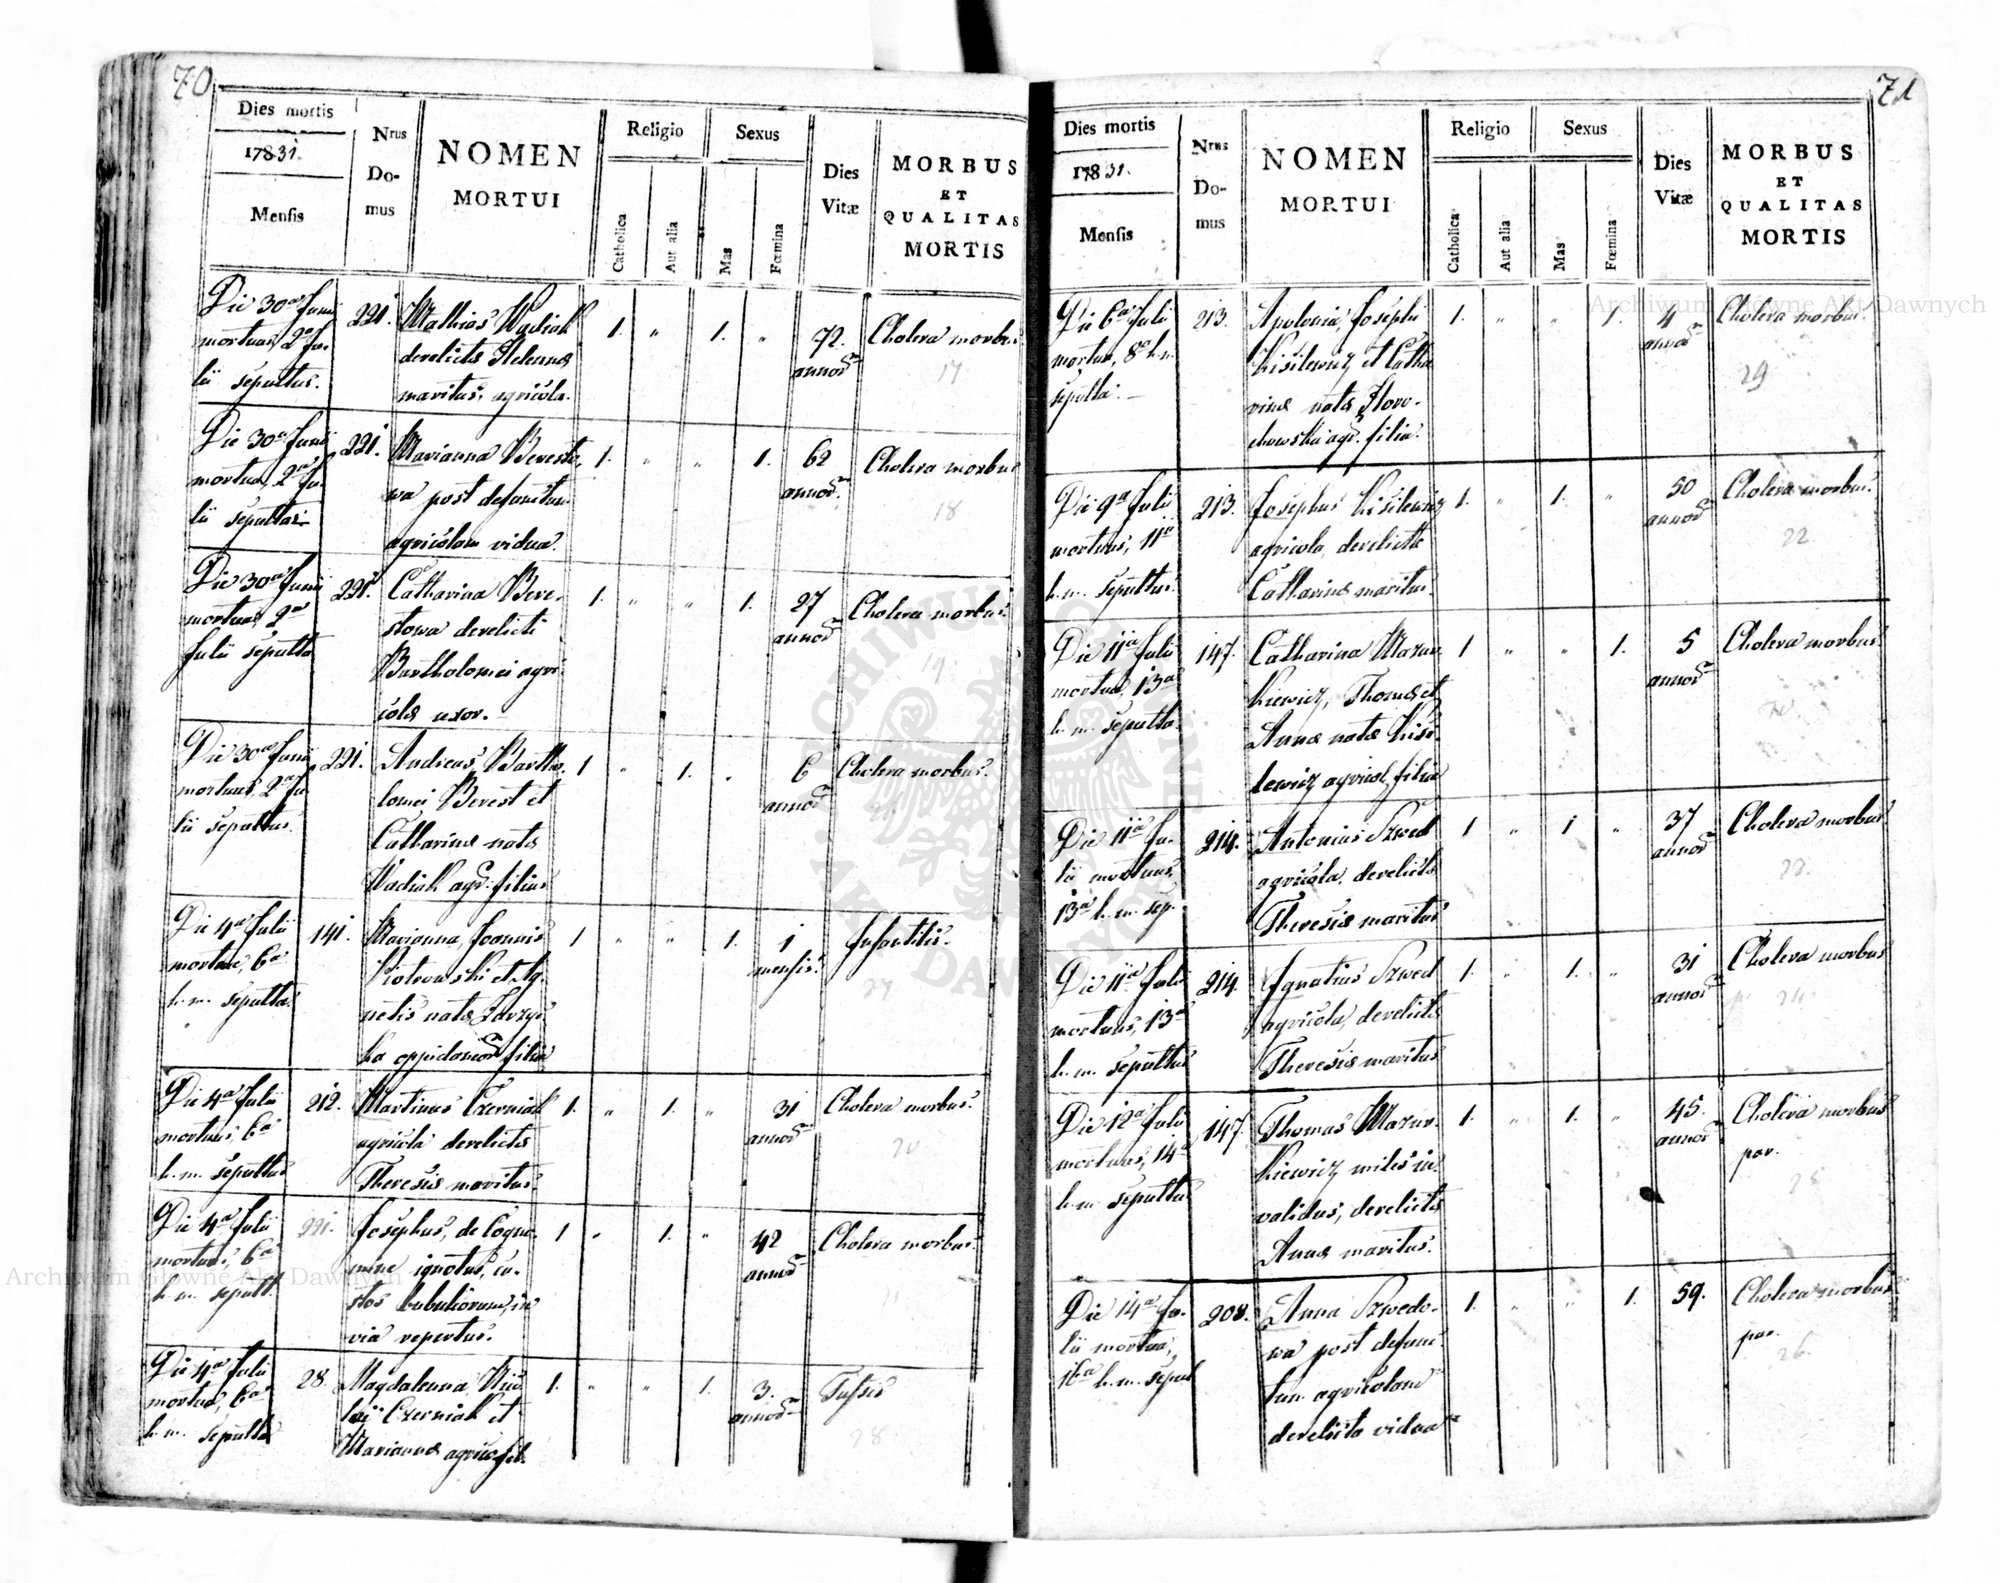 70
Dies mortis
1831.
Mensis
Nrus
Do-
mus
NOMEN
MORTUI
Religio
Catholica
Aut alia
Sexus
Mas
Fœmina
Dies
Vitæ
MORBUS
ET
QUALITAS
MORTIS
Die 30a Junii
mortuus, 2a Ju-
lii sepultus.
221.
Mathias Wadiak
derelictæ Helenæ
maritus, agricola.
1. " 1. "
72.
annor
Cholera morbus
17
Die 30a Junii
mortua, 2a Ju-
lii sepulta.
221.
Marianna Beresto-
wa post defunctum
agricolam vidua.
1. " " 1.
62
annor.
Cholera morbus
18
Die 30a Junii
mortua, 2a
Julii sepulta
221.
Catharina Bere-
stowa derelicti
Bartholomei agri-
colæ uxor.
1. " " 1.
27
annor
Cholera morbus.
19.
Die 30a Junii
mortuus, 2a Ju-
lii sepultus.
221.
Andreas, Bartho-
lomei Berest et
Catharinæ natæ
Wadiak agr. filius
1 " 1. "
6
annor
Cholera morbus.
Die 4a Julii
mortua, 6a
h. m. sepulta.
141.
Marianna, Joannis
Piotrowski et Ag-
netis natæ Zarzyc-
ka oppidanor filia
1 " " 1.
1
mensis.
Infantilis.
27
Die 4a Julii
mortuus, 6a
h. m. sepultus
212.
Martinus Czerniak
agricola derelictæ
Theresiæ maritus.
1. " 1. "
31
annor
Cholera morbus.
20
Die 4a Julii
mortuus, 6a
h. m. sepult.
221.
Josephus, de Cogno-
mine ignotus, cu-
stos bubulorum, in
via repertus.
1 " 1. "
42
annor
Cholera morbus.
Die 4a Julii
mortua, 6a
h. m. sepulta
28.
Magdalenna, Nico-
lai Czerniak et
Mariannæ agric. fil.
1. " " 1.
3.
annor
Tussis
28
71
Dies mortis
1831.
Mensis
Nrus
Do-
mus
NOMEN
MORTUI
Religio
Catholica
Aut alia
Sexus
Mas
Fœmina
Dies
Vitæ
MORBUS
ET
QUALITAS
MORTIS
Die 6a Julii
mortua, 8a h. m.
sepulta.
213.
Apolonia, Josephi
Kisilewicz et Catha-
rinæ natæ
agr. filia.
1. " " 1.
4
annor
Cholera morbus.
29
Die 9a Julii
mortuus, 11a
h. m. sepultus.
213.
Josephus Kisilewicz
agricola, derelictæ
Catharinæ maritus.
1. " 1. "
50
annor
Cholera morbus.
22
Die 11a Julii
mortua, 13a
h. m. sepulta.
147.
Catharina Mazur-
kiewicz, Thomæ et
Annæ natæ Kisi-
lewicz agricol. filia
1 " " 1.
5
annor
Cholera morbus.
Die 11a Ju-
lii mortuus,
13a h. m. sep.
214.
Antonius Szwed
agricola, derelictæ
Theresiæ maritus
1 " 1 "
37
annor
Cholera morbus
Die 11a Julii
mortuus, 13a
h. m. sepultus
214.
Ignatius Szwed
agricola, derelictæ
Theresiæ maritus
1. " 1. "
31
annor
Cholera morbus
24.
Die 12a Julii
mortuus, 14a
h. m. sepultus
147.
Thomas Mazur-
kiewicz miles in-
validus, derelictæ
Annæ maritus.
1. " 1. "
45.
annor
Cholera morbus
par.
25
Die 14a Ju-
lii mortua,
16a h. m. sepul
208.
Anna Szwedo-
wa post defunc-
tum agricolam
derelicta vidua
1. " " 1.
59.
Cholera morbus.
par.
26.
Archiwum Główne Akt Dawnych
Archiwum Główne Akt Dawnych
ARCHIWUM GŁÓWNE AKT DAWNYCH